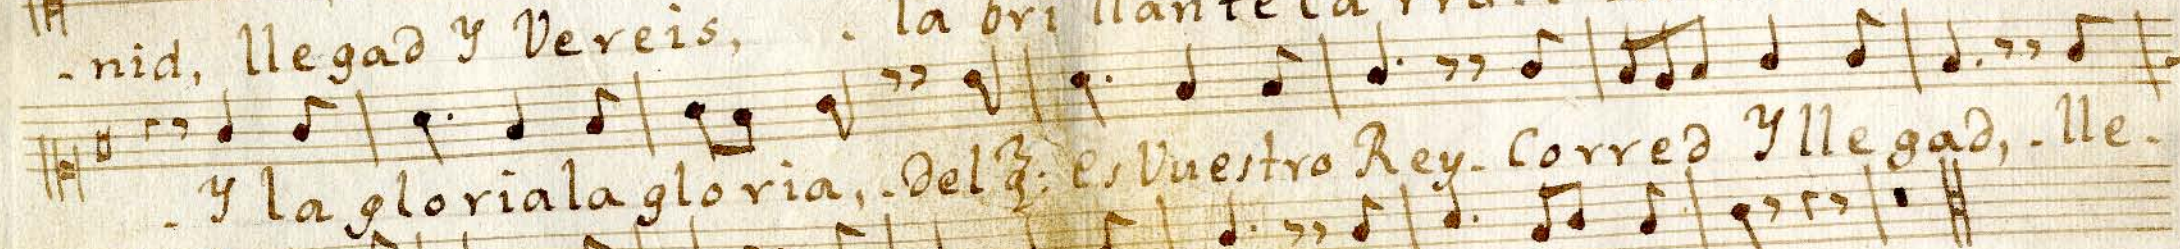 -nid, llegad y Vereis, . la brillante ca
. y la gloria la gloria, . Del es Vuestro Rey. Corred y llegad, . lle-